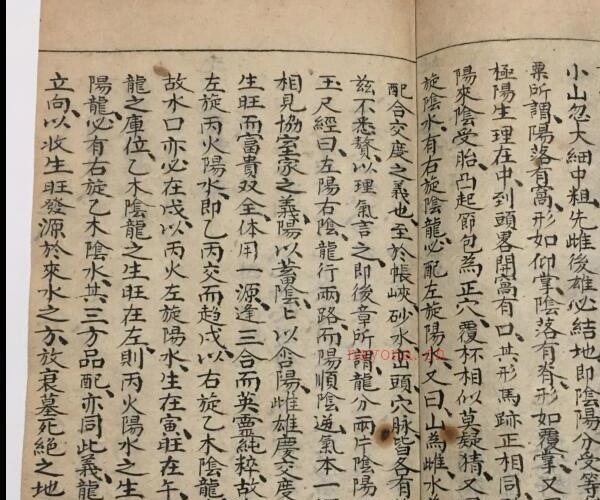 小山忽大細中粗先雌後雄必結地即陰陽分受等
粟所謂陽落有窩形如仰掌陰落有脊形如覆掌又
極陽生理在中到頭畧開窩有口其形馬跡正相同
陽來陰受胎凸起節包為正穴覆杯相似莫疑猜又
旋陰水有右旋陰龍必配左旋陽水又曰山為雌水
配合交度之義也至於帳峽砂水出頭穴脉皆各有
茲不悉贅以理氣言之即後章所謂龍分兩片陰陽
玉尺經曰左陽右陰龍行兩路而陽順陰逆氣本一
相見協室家之義陽以蓄陰陰以含陽雌雄慶交度
生旺而富貴双全体用一源逢三合而英靈純粹故
左旋丙火陽水即乙丙交而趨戌以右旋乙木陰龍
故水口亦必在戌以丙火左旋陽水生在寅旺在午
龍之庫位乙木陰龍之生旺在左則丙火陽水之生
陽龍必有右旋乙木陰水其三方品配亦同此義龍
立向以收生旺發源於來水之方放衰墓死絕之地
nayona.cn